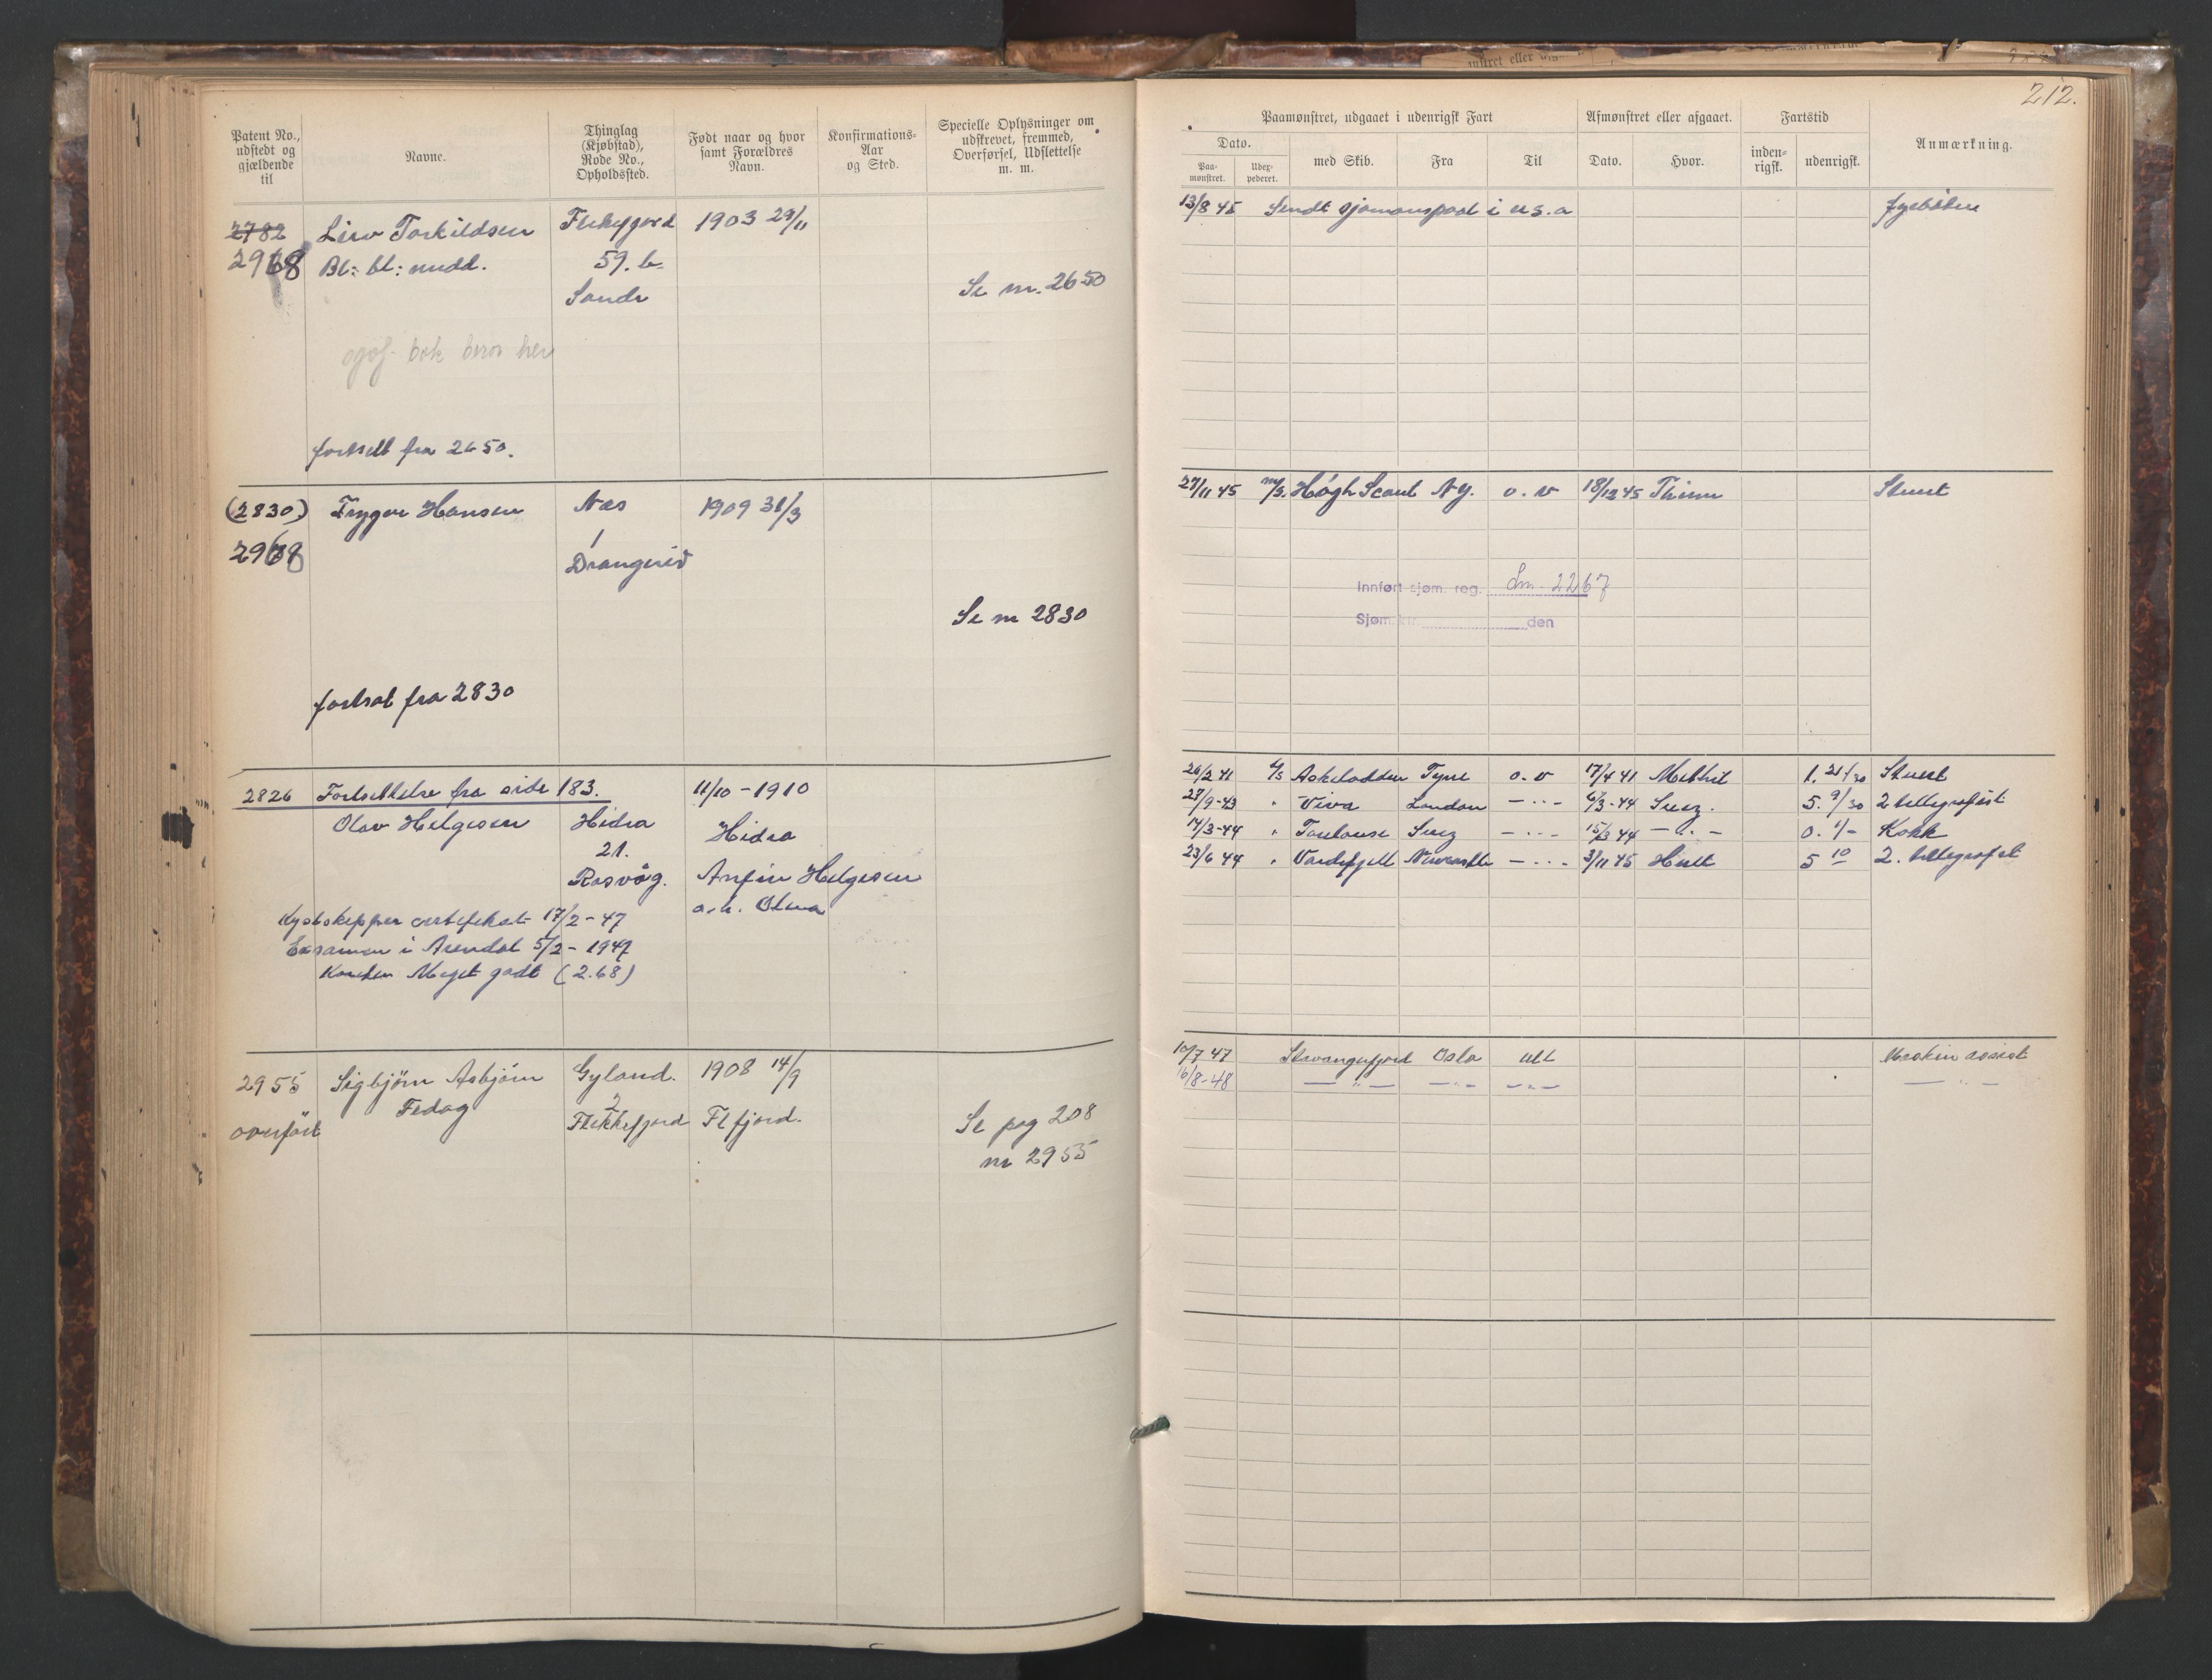 212.
Patent No., udstedt og gjældende til
Navne.
Thinglag (Kjøbstad), Rode No., Opholdssted.
Født naar og hvor samt Forældres Navn.
Konfirmations-Aar og Sted.
Specielle Oplysninger om udskrevet, fremmed, Overførsel, Udslettelse m. m.
Paamønstret, udgaaet i udenrigsk Fart
Afmønstret eller afgaaet.
Fartstid
Anmærkning.
Dato.
Paa-mønstret.
med Skib.
Fra
Til
Dato.
Hvor.
inden-rigsk.
udenrigsk.
2782 Torkildsen 1903 29/11
2968 Bl: bl: midd. 59. b.
Sande
Se nr. 2650
bok beror her
fortsett fra 2650.
13/8 45 Sendt i U.S.A. fyrbøter
(2830) Trygve Hansen Næs 1909 31/3
2968 1
Drangeid
Se nr 2830
fortsat fra 2830
27/11 45 M/S. Høgh Scout N.Y. o. v 18/12 45 Stuert
Innført sjøm. reg. Lm - 2267
Sjøm.ktr. den
2826 Fortsettelse fra side 183. 11/10 - 1910
Olav Helgesen Hidra Hidra
21.
Rasvåg. Anfin Helgesen
o. h. Olena
Kystskipper certifikat 17/2 - 47
Examen i Arendal 5/2 - 1947
Karakter Meget godt (2.68)
26/2 41 t/s Askeladden Tyne o. v 17/4 41 Methil 1. 21/30 Stuert
27/9-43 " Viva London — " — 6/3-44 Suez. 5. 9/30 2 telegrafist
14/3-44 " Toulouse Suez — " — 15/3 44 — " — 0. 1/- Kokk
23/6 44 " Vardefjell Newcastle — " — 3/11 45 Hull 5 10 2. telegrafist
2955 Sigbjørn Asbjørn Gyland. 1908 14/9
Fedog 2
overført Flekkefjord Fl fjord.
Se pag 208
nr 2955
10/7 47 Stavangerfjord Oslo utl Maskin assist
16/8-48 — " — — " — — " — — " —